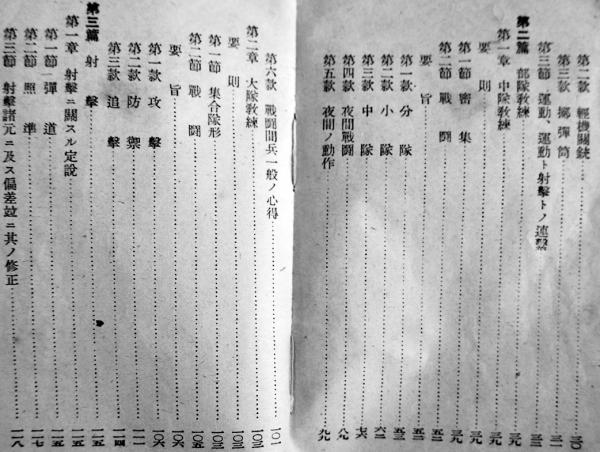 第二款 輕機關銃……三〇
第三款 擲彈筒……三一
第三節 運動、運動ト射擊トノ連繫……三三
第二篇 部隊教練……三九
第一章 中隊教練……三九
要則……三九
第一節 密集……三九
第二節 戰鬪……五三
要旨……五三
第一款 分隊……五三
第二款 小隊……六二
第三款 中隊……七六
第四款 夜間戰鬪……八九
第五款 夜間ノ動作……九九
第六款 戰鬪間兵一般ノ心得……一〇一
第二章 大隊教練……一〇三
要則……一〇三
第一節 集合隊形……一〇三
第二節 戰鬪……一〇五
要旨……一〇六
第一款 攻擊……一〇六
第二款 防禦……
第三款 追擊……一一四
第三篇 射擊……一一五
第一章 射擊ニ關スル定說……一一五
第一節 彈道……一一五
第二節 照準……一一七
第三節 射擊諸元ニ及ス偏差竝ニ其ノ修正……一一八